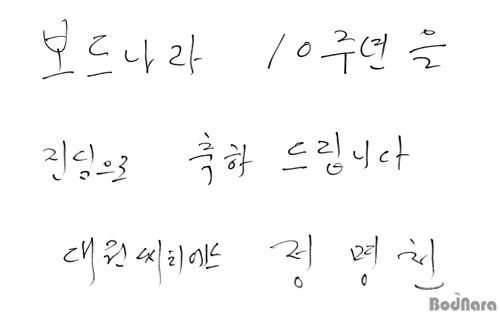 보드나라 10주년을
진심으로 축하 드립니다
대원씨티에스 정명천
BodNara